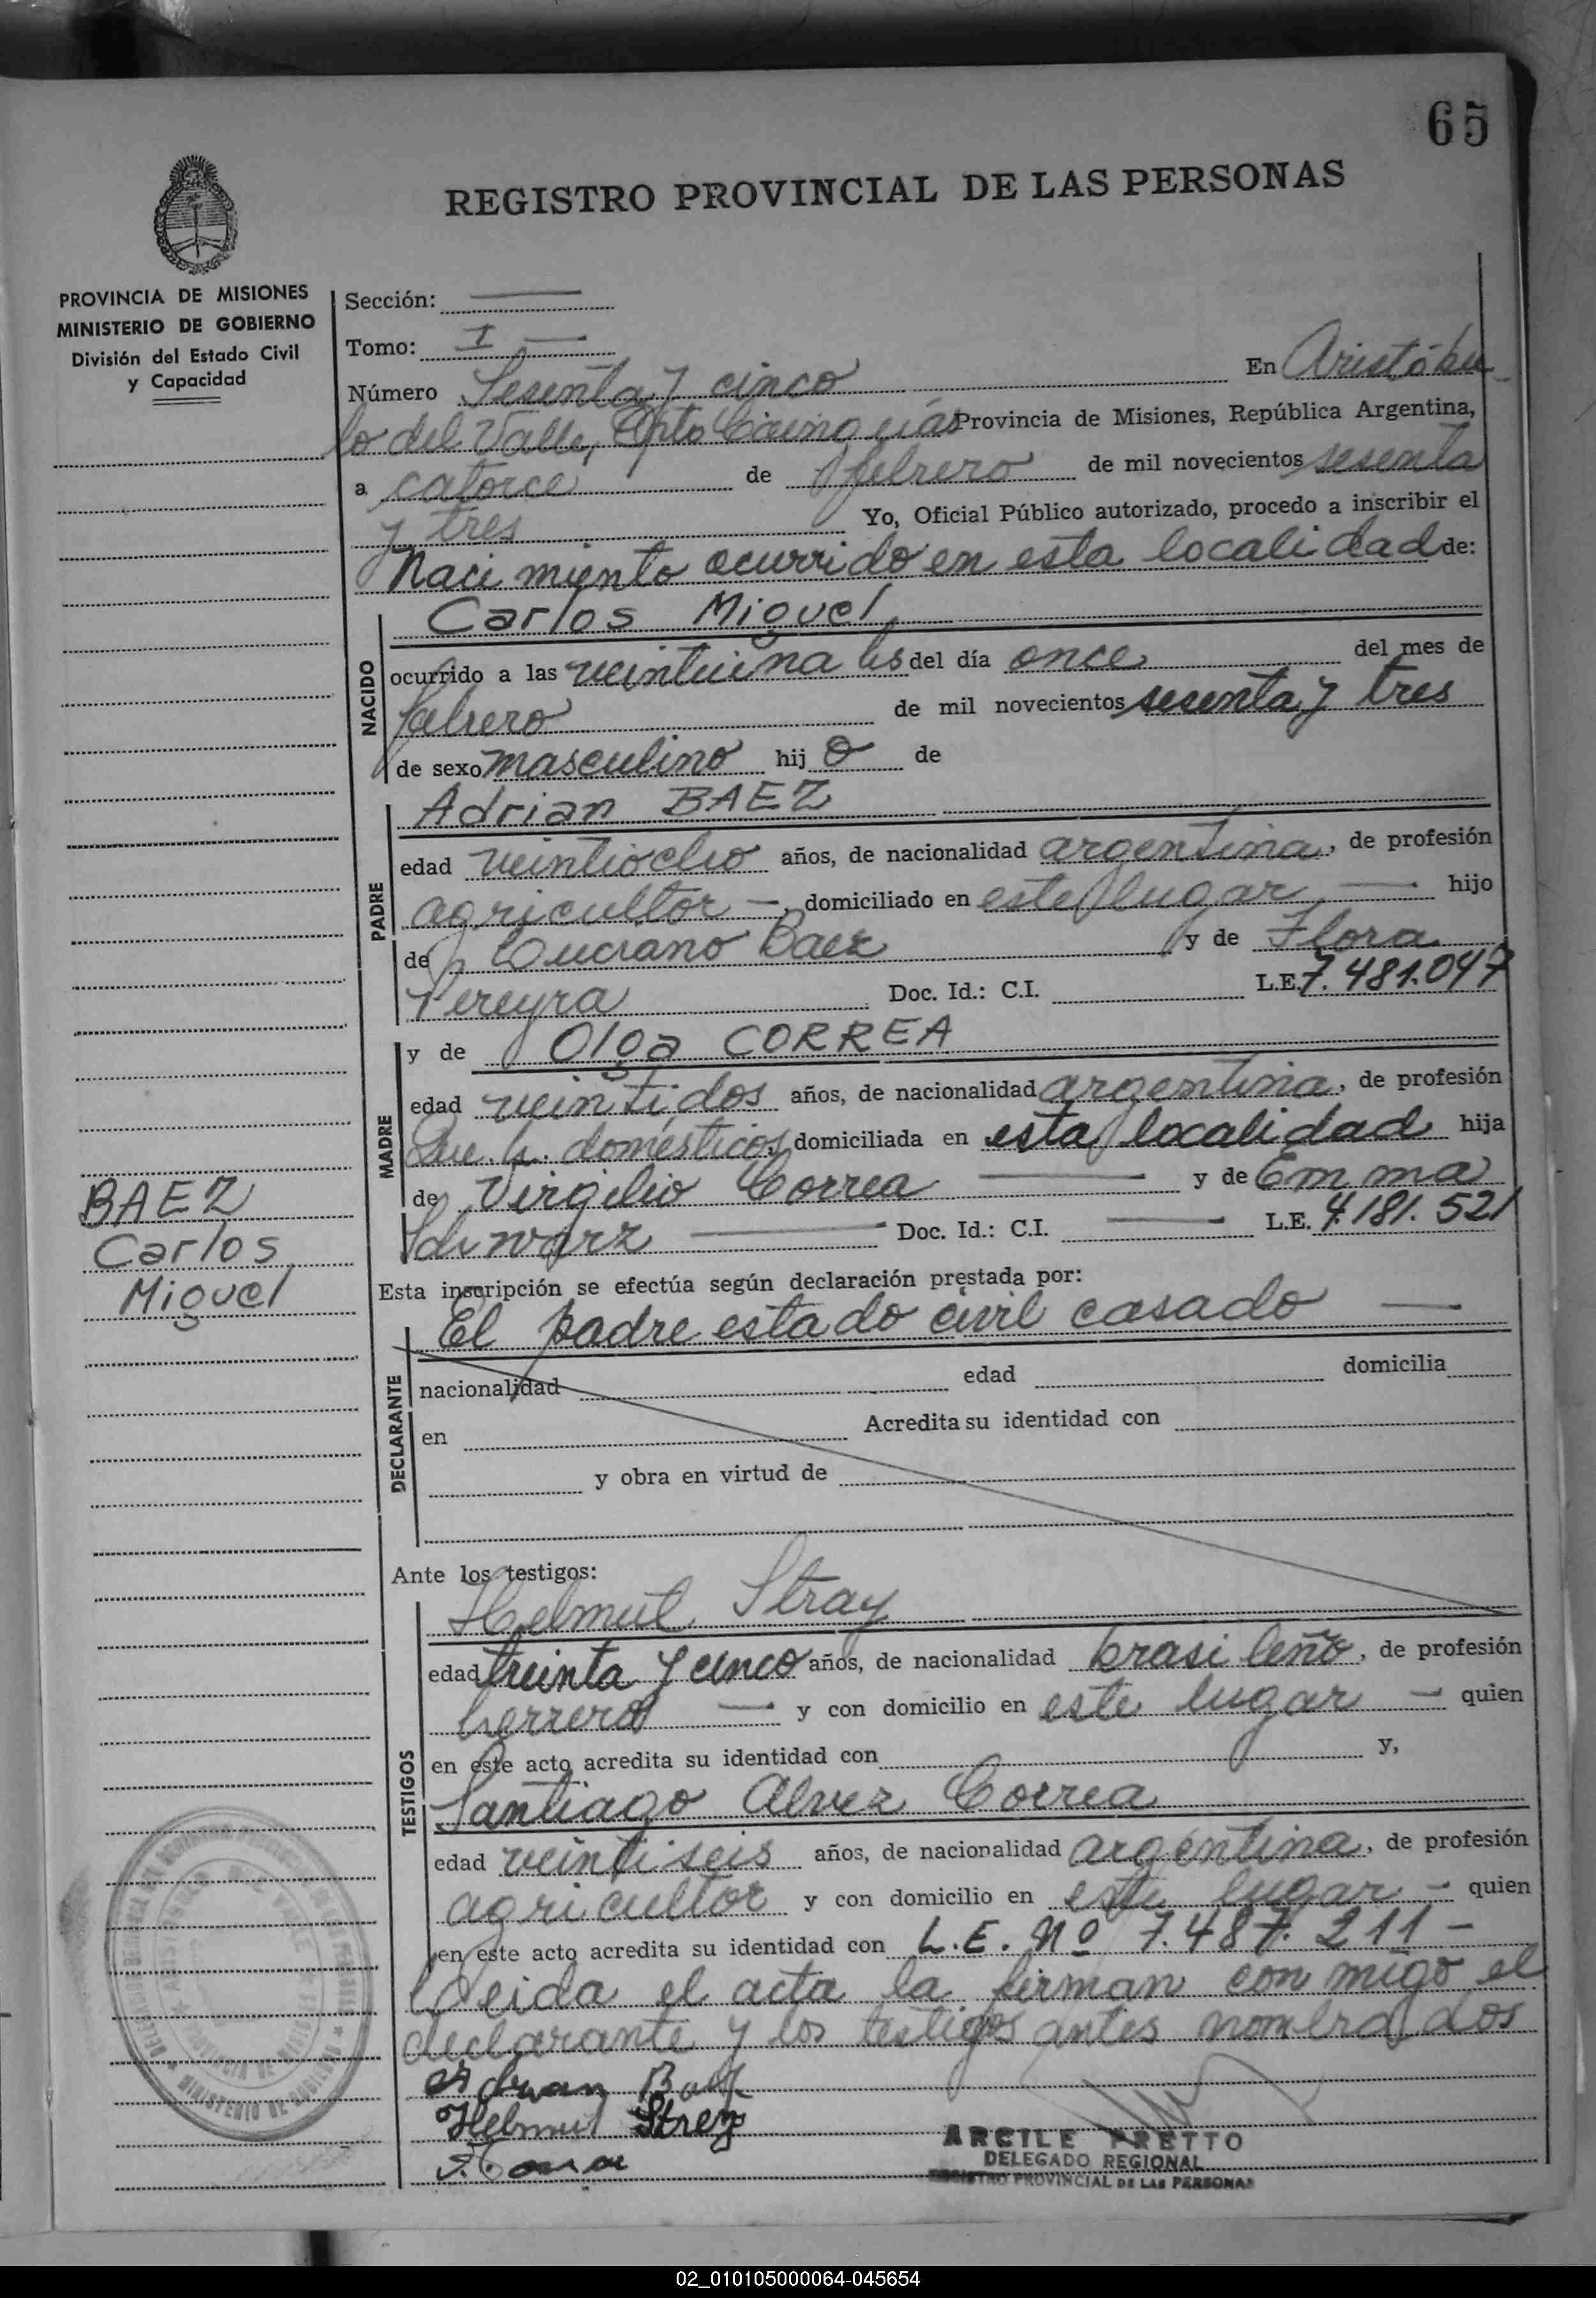 65
REGISTRO PROVINCIAL DE LAS PERSONAS
PROVINCIA DE MISIONES
MINISTERIO DE GOBIERNO
División del Estado Civil
y Capacidad
Sección:
Tomo: I
Número Sesenta y cinco En Aristóbu-
lo del Valle, Dpto Cainguás Provincia de Misiones, República Argentina,
a catorce de febrero de mil novecientos sesenta
y tres Yo, Oficial Público autorizado, procedo a inscribir el
Nacimiento ocurrido en esta localidad de:
NACIDO
Carlos Miguel
ocurrido a las veintiuna hs del día once del mes de
febrero de mil novecientos sesenta y tres
de sexo masculino hij o de
PADRE
Adrian BAEZ
edad veintiocho años, de nacionalidad argentina, de profesión
agricultor -, domiciliado en este lugar hijo
de Luciano Baez y de Flora
Pereyra Doc. Id.: C.I. L.E. 7.481.047
MADRE
y de Olga CORREA
edad veintidos años, de nacionalidad argentina, de profesión
Qu. h. domésticos, domiciliada en esta localidad hija
de Virgilio Correa y de Emma
Schwarz Doc. Id.: C.I. L.E. 4.181.521
BAEZ
Carlos
Miguel
Esta inscripción se efectúa según declaración prestada por:
DECLARANTE
El padre estado civil casado
nacionalidad edad domicilia
en Acredita su identidad con
y obra en virtud de
Ante los testigos:
TESTIGOS
Helmut Stray
edad treinta y cinco años, de nacionalidad brasileño, de profesión
herrero y con domicilio en este lugar - quien
en este acto acredita su identidad con y,
Santiago Alvez Correa
edad veintiseis años, de nacionalidad argentina, de profesión
agricultor y con domicilio en este lugar - quien
en este acto acredita su identidad con L.E. Nº 7.487.211 -
Leida el acta la firman con migo el
declarante y los testigos antes nombrados
Adrian Baez
Helmut Strey
ARCILE PRETTO
DELEGADO REGIONAL
REGISTRO PROVINCIAL DE LAS PERSONAS
MINISTERIO DE GOBIERNO
02_010105000064-045654